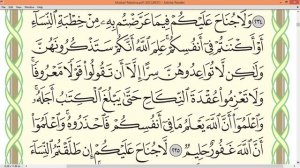 Mushaf Madinna.pdf (SECURED) - Adobe Reader
٢٣٤ وَلَا جُنَاحَ عَلَيْكُمْ فِيمَا عَرَّضْتُم بِهِۦ مِنْ خِطْبَةِ ٱلنِّسَآءِ
أَوْ أَكْنَنتُمْ فِىٓ أَنفُسِكُمْ ۚ عَلِمَ ٱللَّهُ أَنَّكُمْ سَتَذْكُرُونَهُنَّ
وَلَٰكِن لَّا تُوَاعِدُوهُنَّ سِرًّا إِلَّآ أَن تَقُولُوا۟ قَوْلًا مَّعْرُوفًا ۚ
وَلَا تَعْزِمُوا۟ عُقْدَةَ ٱلنِّكَاحِ حَتَّىٰ يَبْلُغَ ٱلْكِتَٰبُ أَجَلَهُۥ ۚ
وَٱعْلَمُوٓا۟ أَنَّ ٱللَّهَ يَعْلَمُ مَا فِىٓ أَنفُسِكُمْ فَٱحْذَرُوهُ ۚ وَٱعْلَمُوٓا۟
أَنَّ ٱللَّهَ غَفُورٌ حَلِيمٌ ٢٣٥ لَّا جُنَاحَ عَلَيْكُمْ إِن طَلَّقْتُمُ ٱلنِّسَآءَ